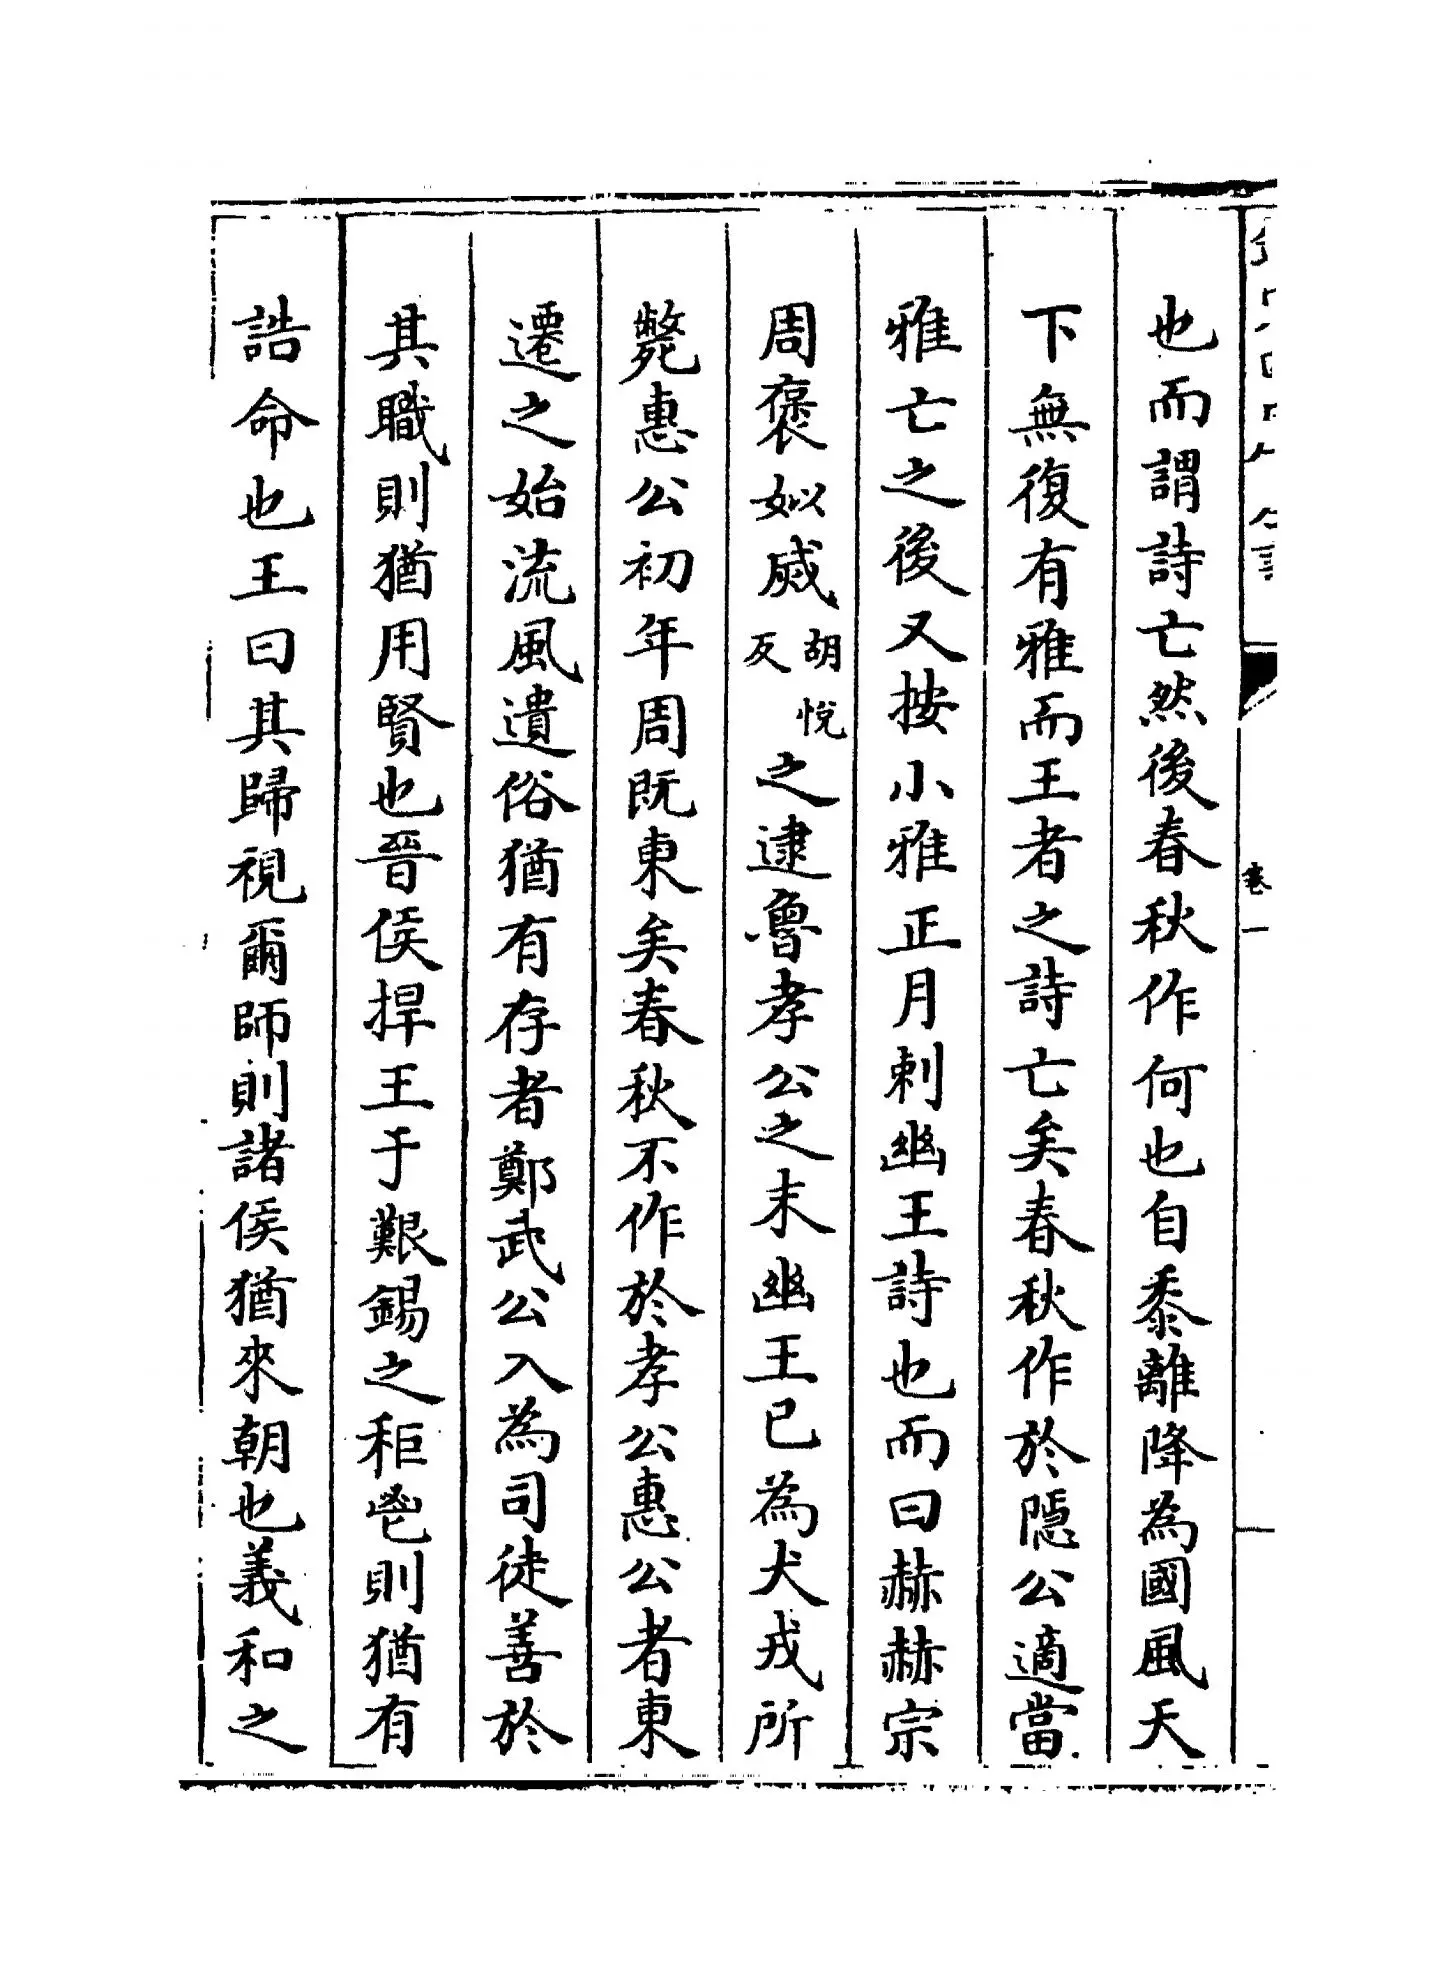 卷一
也而謂詩亡然後春秋作何也自黍離降為國風天
下無復有雅而王者之詩亡矣春秋作於隱公適當
雅亡之後又按小雅正月刺幽王詩也而曰赫赫宗
周褒姒烕胡悅反之逮魯孝公之末幽王已為犬戎所
斃惠公初年周既東矣春秋不作於孝公惠公者東
遷之始流風遺俗猶有存者鄭武公入為司徒善於
其職則猶用賢也晉侯捍王于艱錫之秬鬯則猶有
誥命也王曰其歸視爾師則諸侯猶來朝也義和之